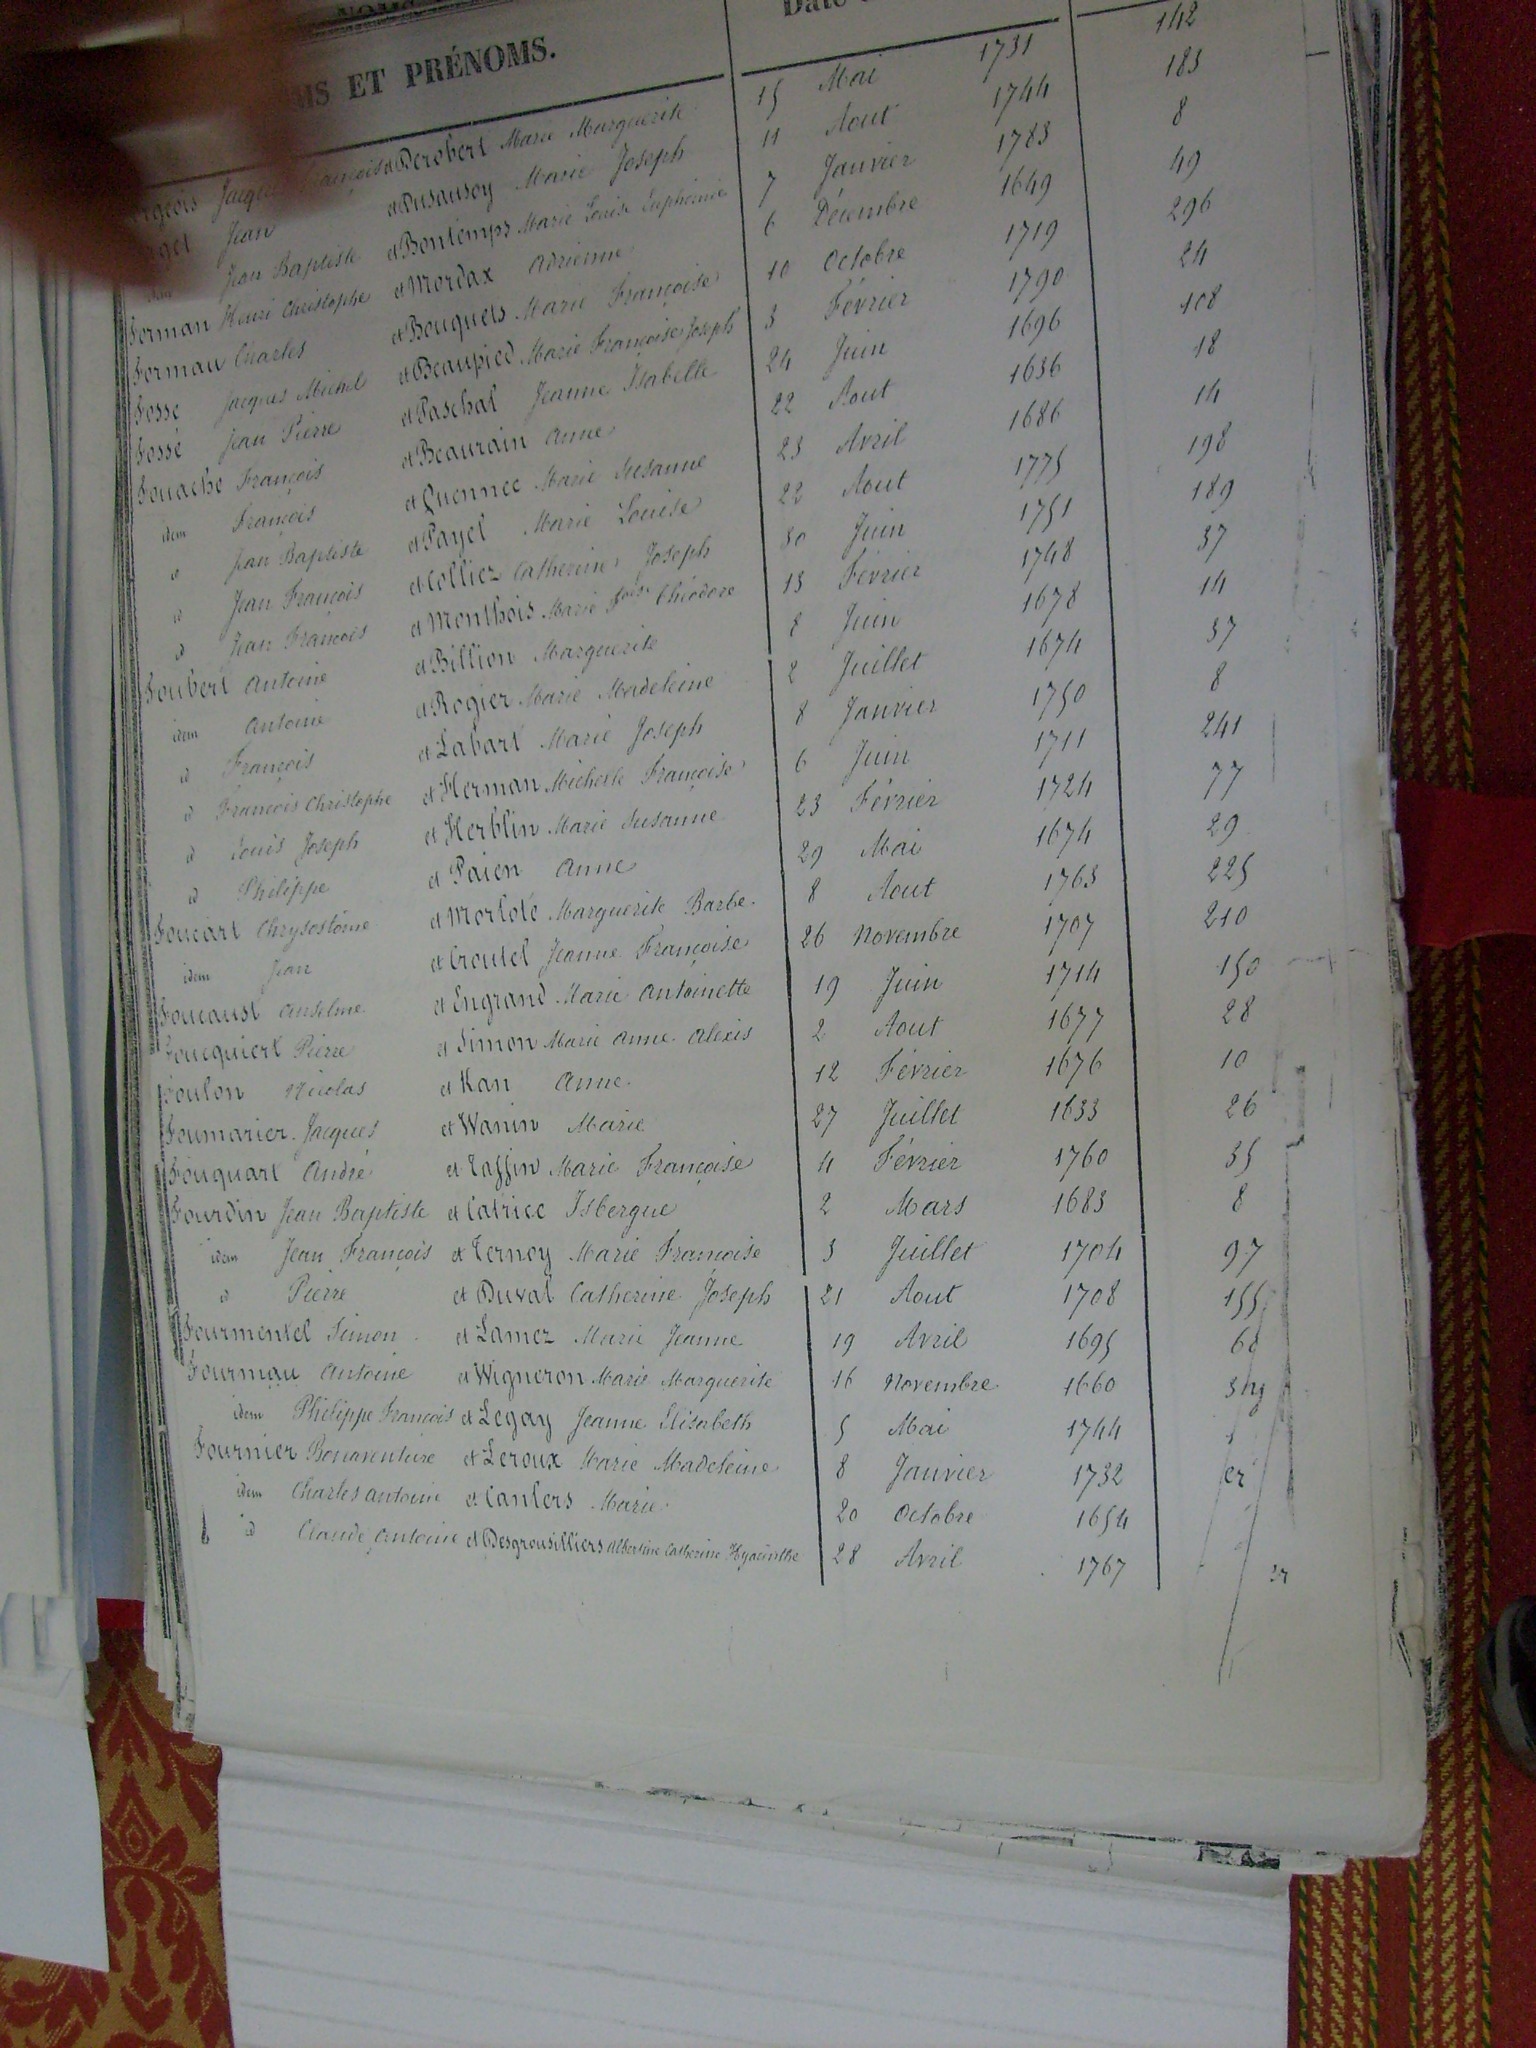 ET PRÉNOMS.
et Derobert Marie Marguerite 15 Mai 1731 142
Jean et Dusausoy Marie Joseph 11 Aout 1744 183
Jean Baptiste et Bontemps Marie Louise Euphémie 7 Janvier 1783 8
Forman Henri Christophe et Mordax Adrienne 6 Décembre 1649 49
Formau Charles et Bouquets Marie Françoise 10 Octobre 1719 296
Fosse Jacques Michel et Beaupied Marie Françoise Joseph 3 Février 1790 24
Fossé Jean Pierre et Paschal Jeanne Isabelle 24 Juin 1696 108
Fouache François et Beaurain Anne 22 Aout 1636 18
idem François et Quennec Marie Susanne 23 Avril 1686 14
id Jean Baptiste et Payel Marie Louise 22 Aout 1775 198
id Jean François et Colliez Catherine Joseph 30 Juin 1751 189
id Jean François et Monthois Marie Fçoise Théodore 13 Février 1748 37
Foubert Antoine et Billion Marguerite 8 Juin 1678 14
idem Antoine et Rogier Marie Madeleine 2 Juillet 1674 37
id François et Labart Marie Joseph 8 Janvier 1750 8
id François Christophe et Herman Michelle Françoise 6 Juin 1711 241
id Louis Joseph et Herblin Marie Susanne 23 Février 1724 77
id Philippe et Paien Anne 29 Mai 1674 29
Foucart Chrysostôme et Morlole Marguerite Barbe. 8 Aout 1763 225
idem Jean et Croutel Jeanne Françoise 26 Novembre 1707 210
Foucaust Anselme et Engrand Marie Antoinette 19 Juin 1714 150
Foucquiert Pierre et Simon Marie Anne Alexis 2 Aout 1677 28
Foulon Nicolas et Kan Anne. 12 Février 1676 10
Foumarier. Jacques et Wanin Marie 27 Juillet 1633 26
Fouquart André et Taffin Marie Françoise 4 Février 1760 35
Fourdin Jean Baptiste et Catrice Isbergue 2 Mars 1683 8
idem Jean François et Ternoy Marie Françoise 3 Juillet 1704 97
id Pierre et Duval Catherine Joseph 21 Aout 1708 155
Fourmentel Simon et Lamez Marie Jeanne 19 Avril 1695
Fourmau Antoine et Wigneron Marie Marguerite 16 Novembre 1660
idem Philippe François et Legay Jeanne Elisabeth 5 Mai 1744
Fournier Bonaventure et Leroux Marie Madeleine 8 Janvier 1732
idem Charles Antoine et Canlers Marie. 20 Octobre 1654
id Claude Antoine et Desgrousilliers Albertine Catherine Hyacinthe 28 Avril 1767